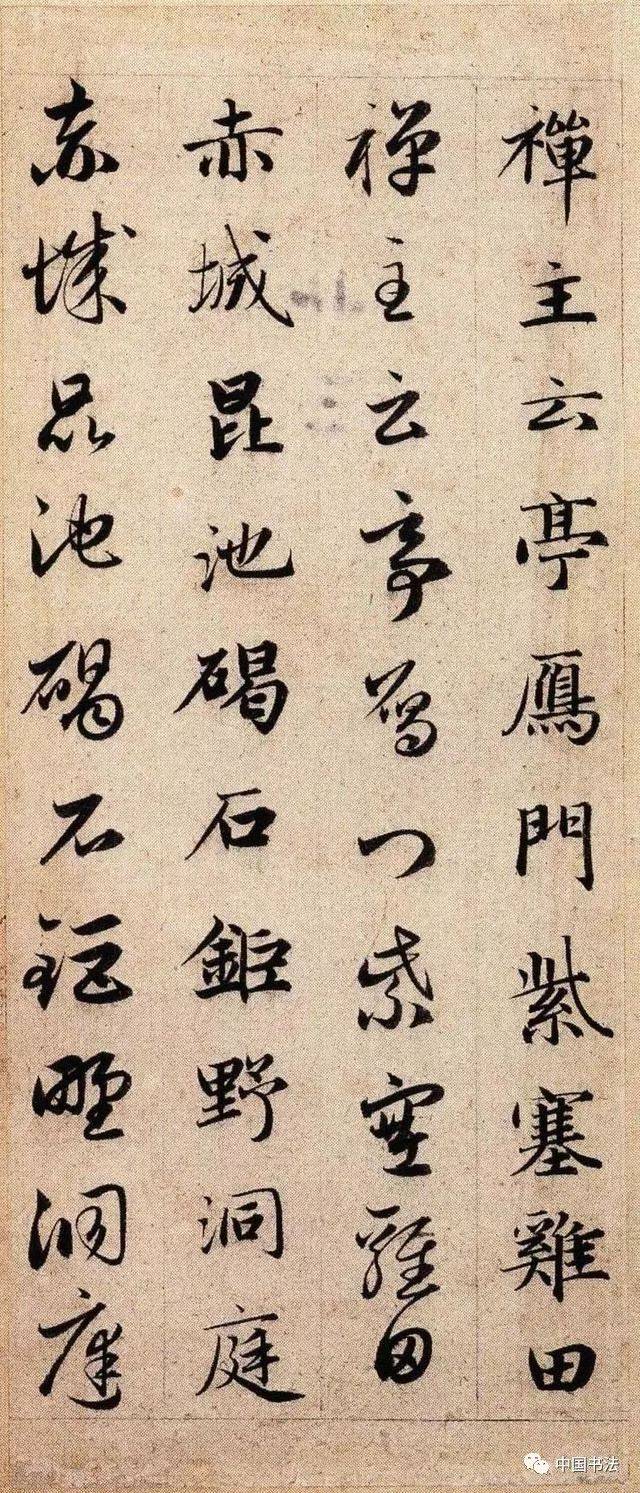 禪主云亭鴈門紫塞雞田
禪主云亭鴈門紫塞雞田
赤城昆池碣石鉅野洞庭
赤城昆池碣石鉅野洞庭
中国书法